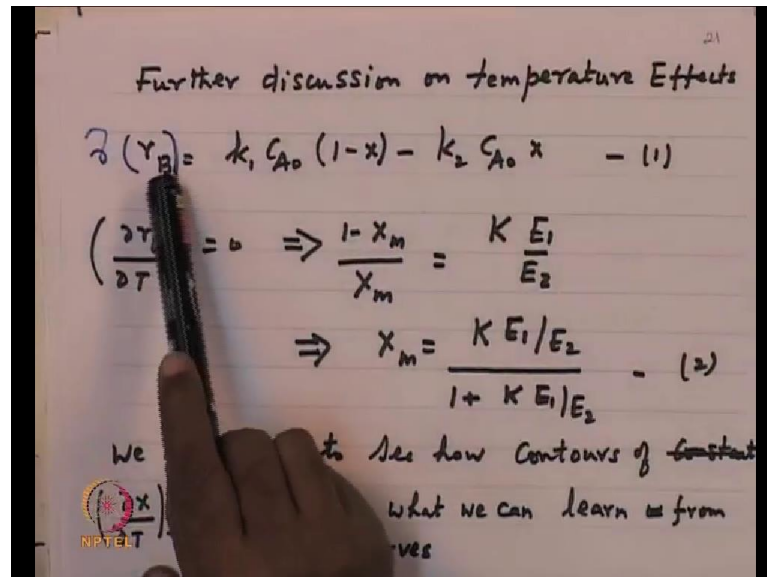 21
Further discussion on temperature Effects
(r_B) = k_1 C_A0 (1-x) - k_2 C_A0 x - (1)
(∂r / ∂T = 0 ⇒ 1-X_m / X_m = K E_1 / E_2
⇒ X_m = K E_1/E_2 / 1 + K E_1/E_2 - (2)
We to see how Contours of Constant
∂X / ∂T what we can learn from
NPTEL